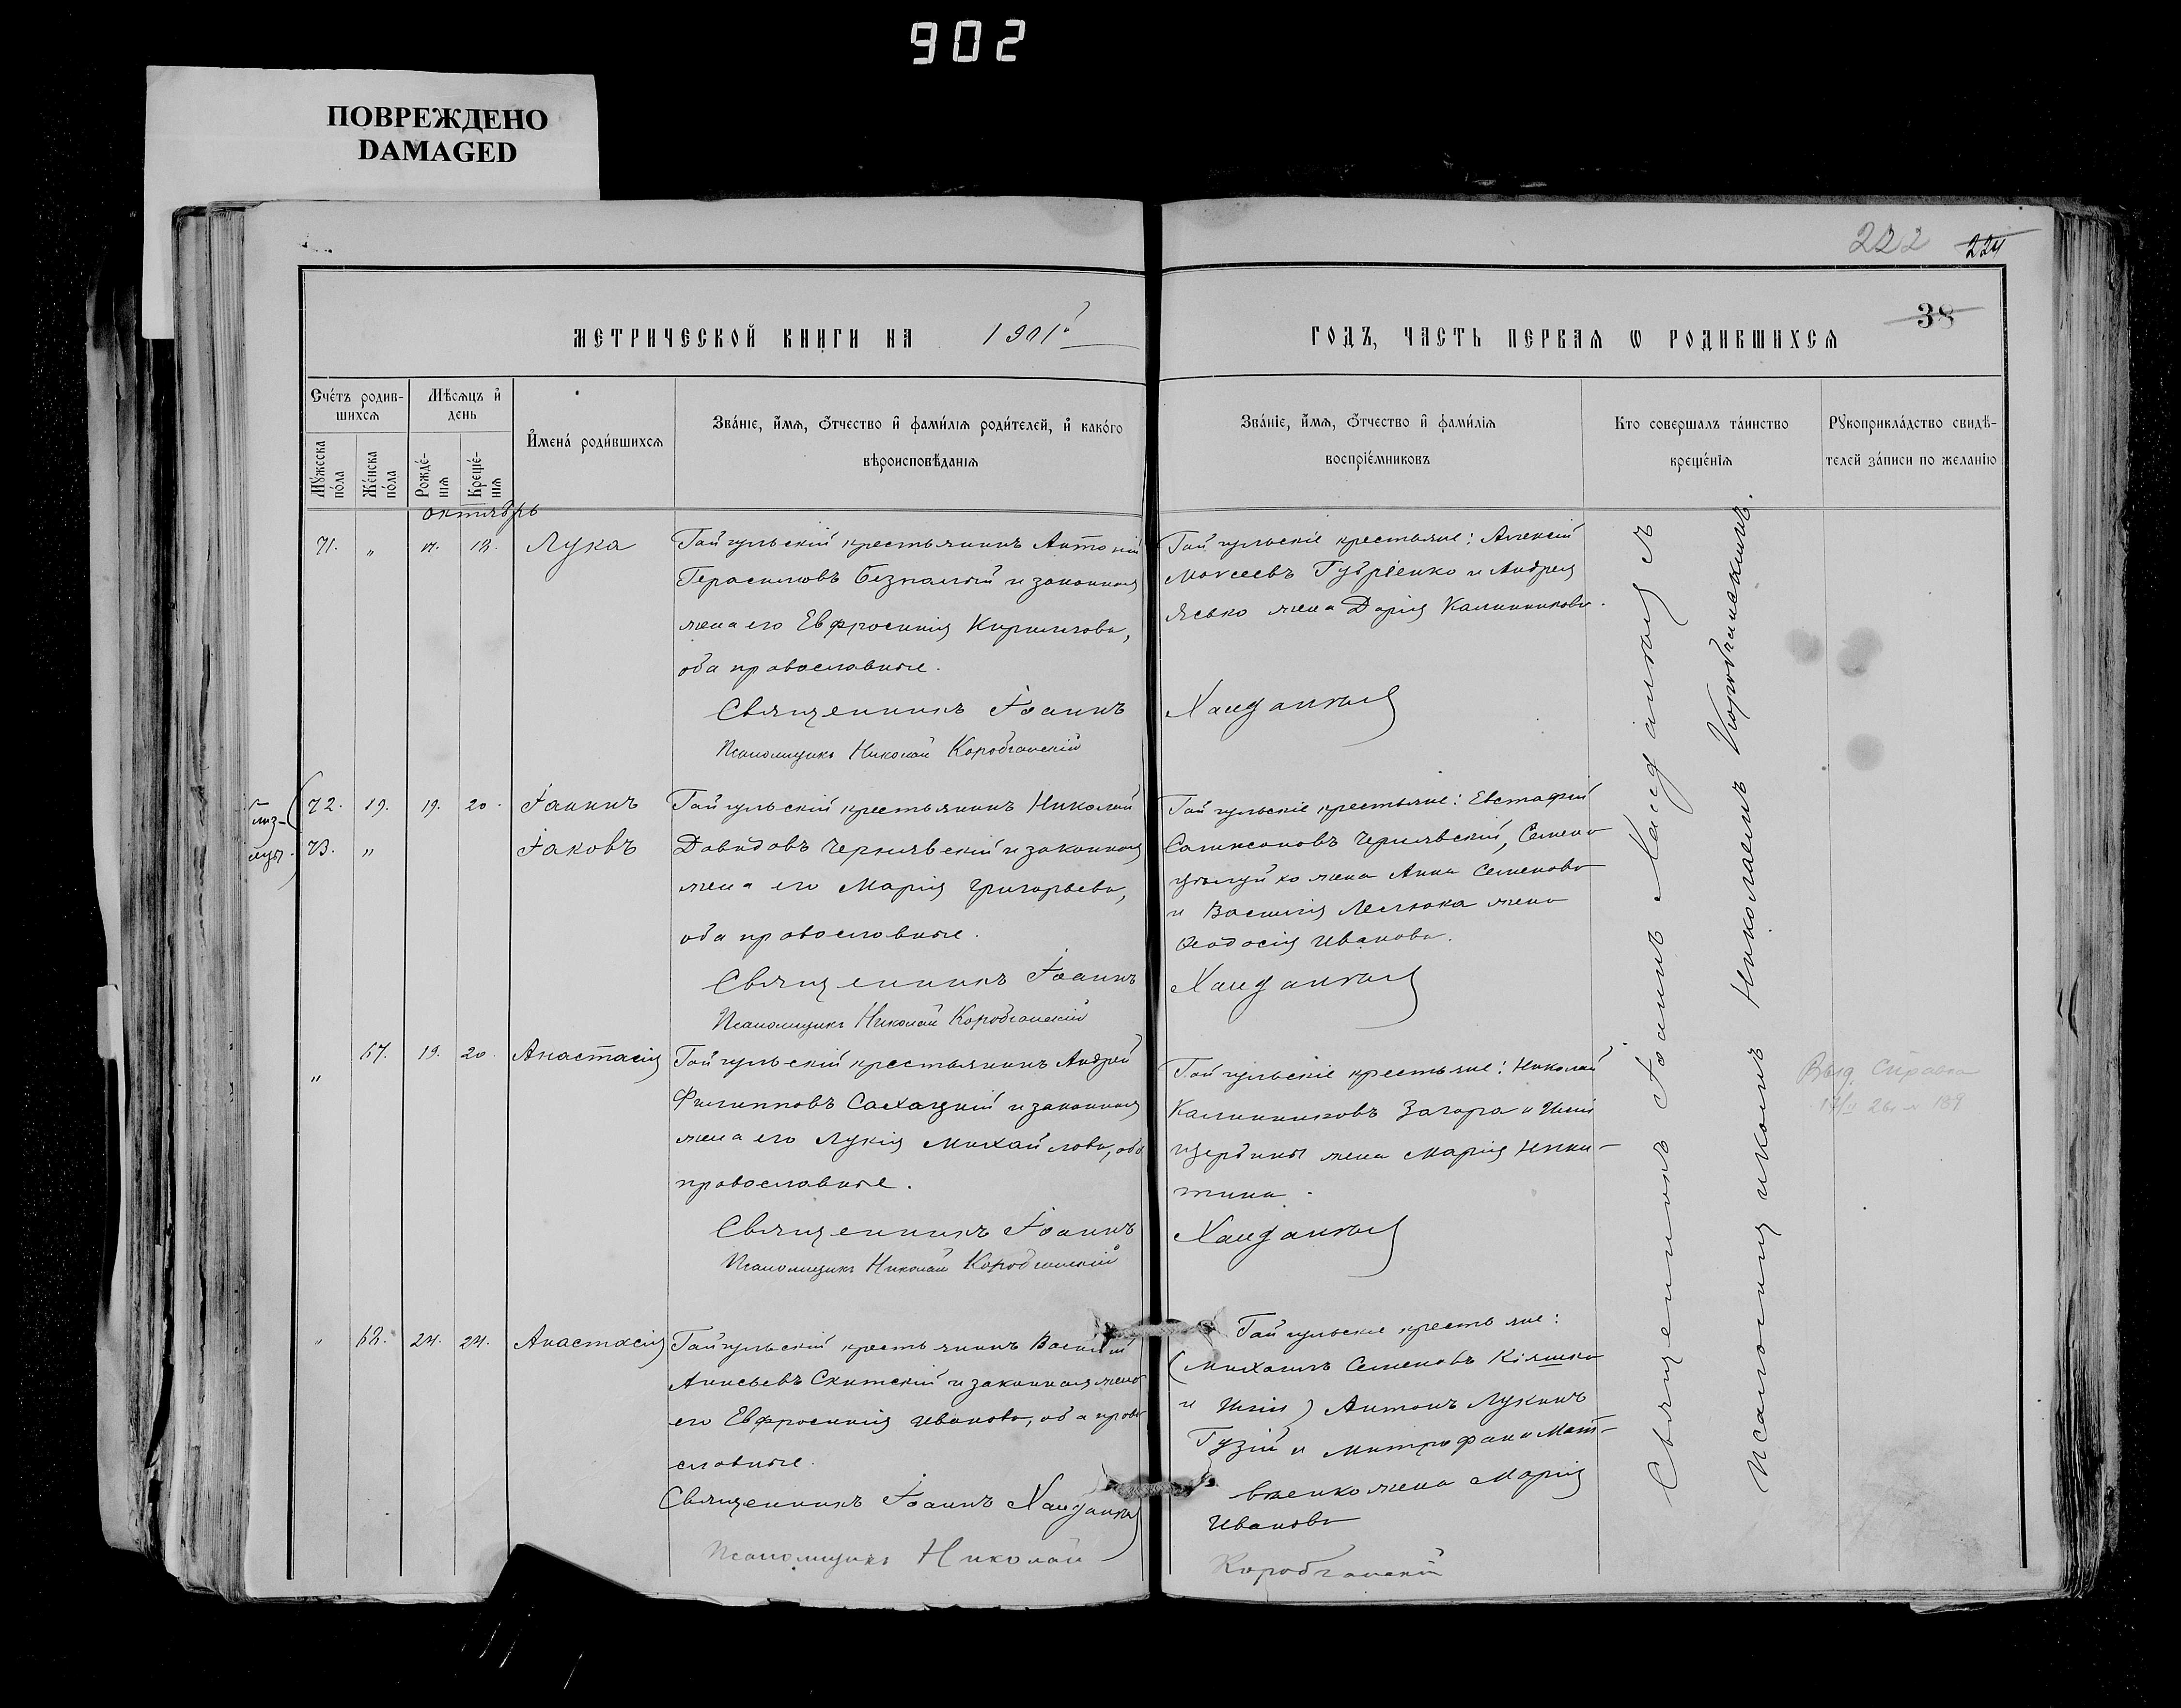 902
ПОВРЕЖДЕНО
DAMAGED
222 224
38
МЕТРИЧЕСКОЙ КНИГИ НА 1901й
ГОДЪ, ЧАСТЬ ПЕРВАЯ Ѡ РОДИВШИХСЯ
Счетъ родив-
шихся
Мѣсяцъ и
день
Мужеска пола
Женска пола
Рожде-
нія
Креще-
нія
Имена родившихся
Званіе, имя, отчество и фамилія родителей, и какого
вѣроисповѣданія
Званіе, имя, отчество и фамилія
воспріемниковъ
Кто совершалъ таинство
крещенія
Рукоприкладство свидѣ-
телей записи по желанію
октябрь
71. " 17. 18. Лука
Гайгульскій крестьянинъ Антоній
Герасимовъ Безпалый и законная
жена его Евфросинія Кириллова,
оба православные.
Священникъ Іоаннъ
Псаломщикъ Николай Коробчанскій
Гайгульскіе крестьяне: Алексій
Моѵсеевъ Губріенко и Андрея
Ясько жена Дарія Каллиникова.
Хандалый
72. 19. 20. Іаннъ
73. " Іаковъ
Гайгульскій крестьянинъ Николай
Давидовъ Чернявскій и законная
жена его Марія Григорьева,
оба православные.
Священникъ Іоаннъ
Псаломщикъ Николай Коробчанскій
Гайгульскіе крестьяне: Евстафій
Сампсоновъ Чернявскій, Семена
жена Анна Семенова
и Василія жена
Ѳеодосія Иванова.
" 67. 19. 20. Анастасія
Гайгульскій крестьянинъ Андрей
Филипповъ Сахацкій и законная
жена его Лукія Михайлова, оба
православные.
Священникъ Іоаннъ
Псаломщикъ Николай Коробчанскій
Гайгульскіе крестьяне: Николай
Каллиниковъ Загора и Иліи
Щербины жена Марія Ники-
тина.
Выд. Справка
" 68. 24. 24. Анастасія
Гайгульскій крестьянинъ Василій
Анисьевъ Скитскій и законная жена
его Евфросинія Иванова, оба право-
славные.
Священникъ Іоаннъ
Псаломщикъ Николай
Гайгульскіе крестьяне:
(Михаилъ Семеновъ Кіяшко
и Иліи) Антонъ Лукинъ
Гузій и Митрофана Мат-
віенко жена Марія
Иванова
Коробчанскій
Священникъ Іоаннъ
Псаломщикомъ Николаемъ Коробчанскимъ.